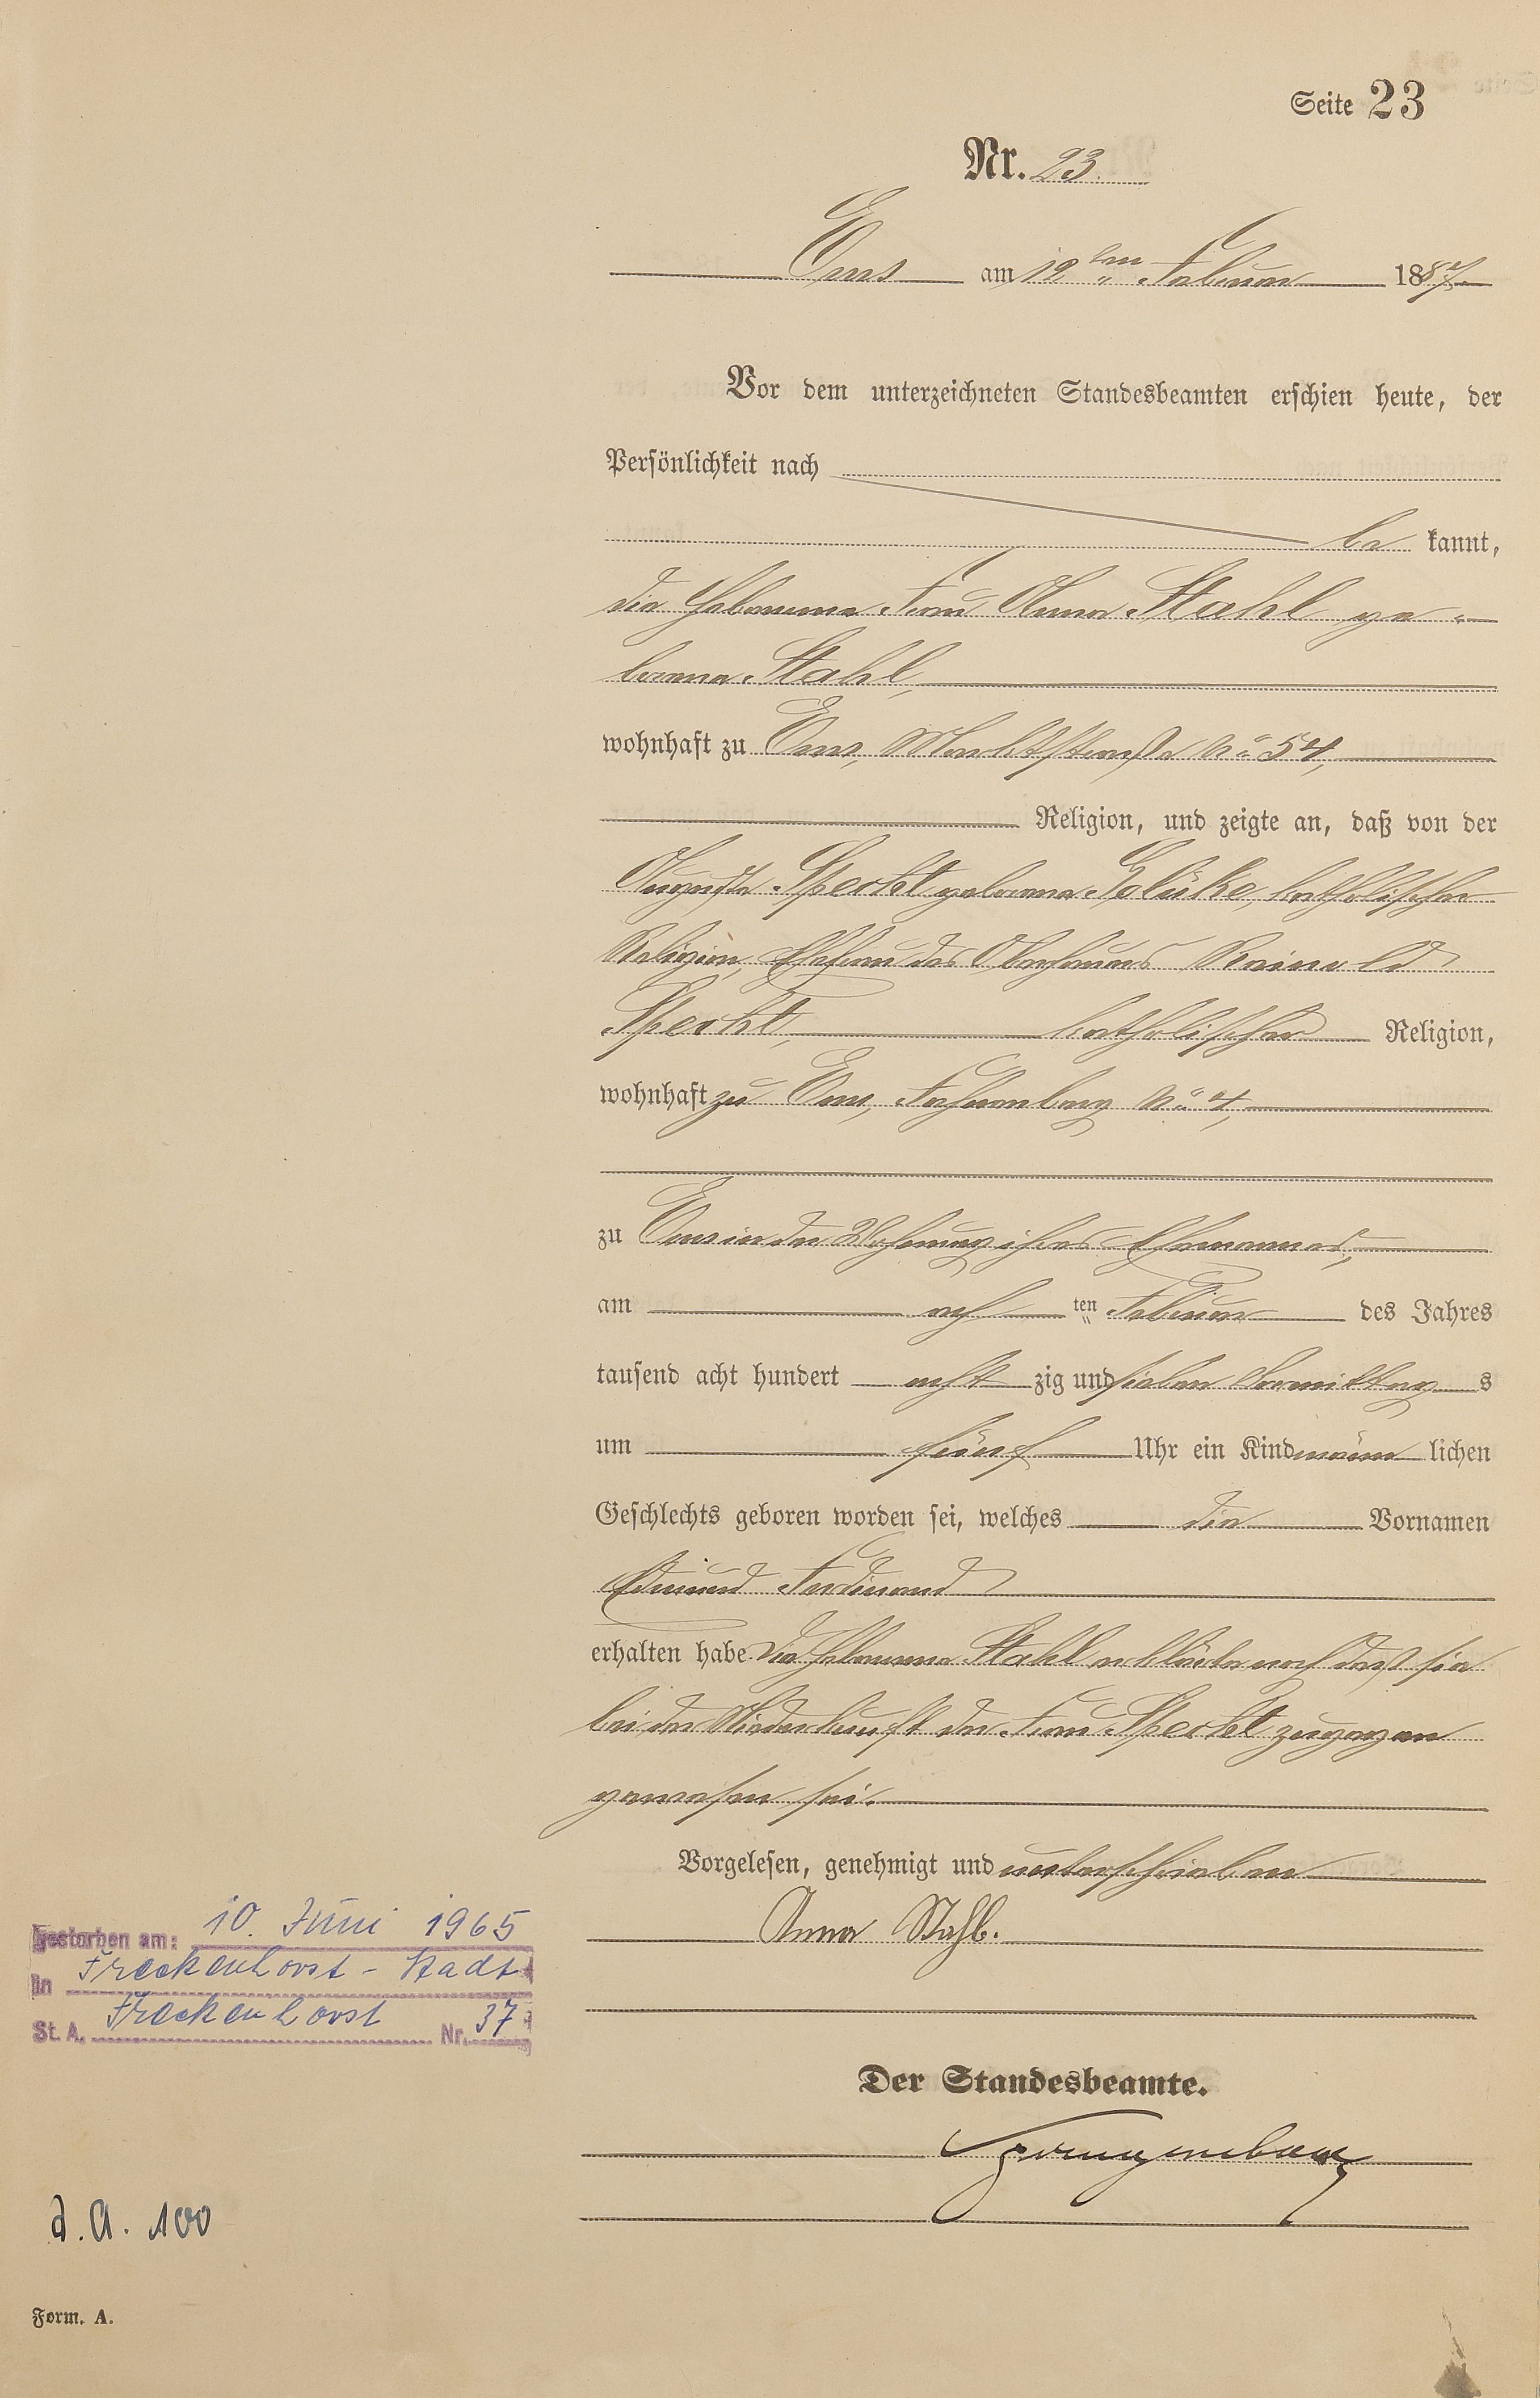 Seite 23
Nr. 23.
Ems am 12ten Februar 1887.
Vor dem unterzeichneten Standesbeamten erschien heute, der
Persönlichkeit nach
be kannt,
die Hebamme Frau Anna Stahl ge-
borene Stahl,
wohnhaft zu Ems, Marktstraße No 54,
Religion, und zeigte an, daß von der
Auguste Specht geborene Golüke, katholischer
Religion, Ehefrau des Reinold
Specht, katholischer Religion,
wohnhaft zu Ems, No 4,
zu Ems in der Wohnung ihres Ehemannes,
am ach ten Februar des Jahres
tausend acht hundert acht zig und sieben Vormittag s
um fünf Uhr ein Kind männ lichen
Geschlechts geboren worden sei, welches die Vornamen
Edmund Ferdinand
erhalten habe. Die Hebamme Stahl erklärte noch daß sie
bei der Niederkunft der Frau Specht zugegen
gewesen sei.
Vorgelesen, genehmigt und unterschrieben
Anna Stahl.
gestorben am: 10. Juni 1965
in Freckenhorst - Stadt
St. A. Freckenhorst Nr. 37
Der Standesbeamte.
d. A. 100
Form. A.